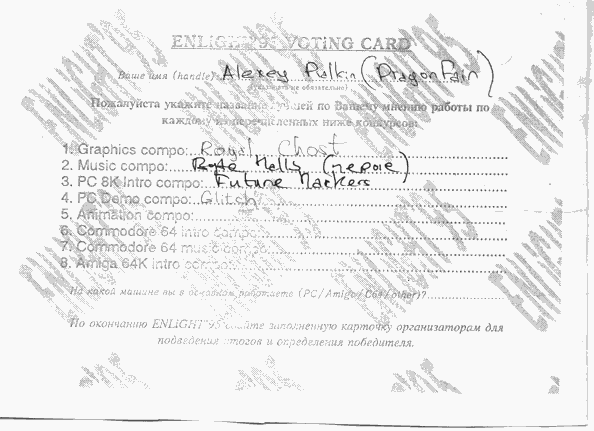 ENLiGHT'95 VOTING CARD
Ваше имя (handle): Alexey Pulkin (DragonPain)
(указывать не обязательно)
Пожалуйста укажите название лучшей по Вашему мнению работы по
каждому из перечисленных ниже конкурсов:
1. Graphics compo: Royal Ghost
2. Music compo: Hells (первое)
3. PC 8K Intro compo: Future Mackers
4. PC Demo compo: Glitch
5. Animation compo:
6. Commodore 64 intro compo:
7. Commodore 64 music compo:
8. Amiga 64K intro compo:
На какой машине вы в основном работаете (PC/Amiga/C64/other)?
По окончанию ENLiGHT'95 сдайте заполненную карточку организаторам для
подведения итогов и определения победителя.